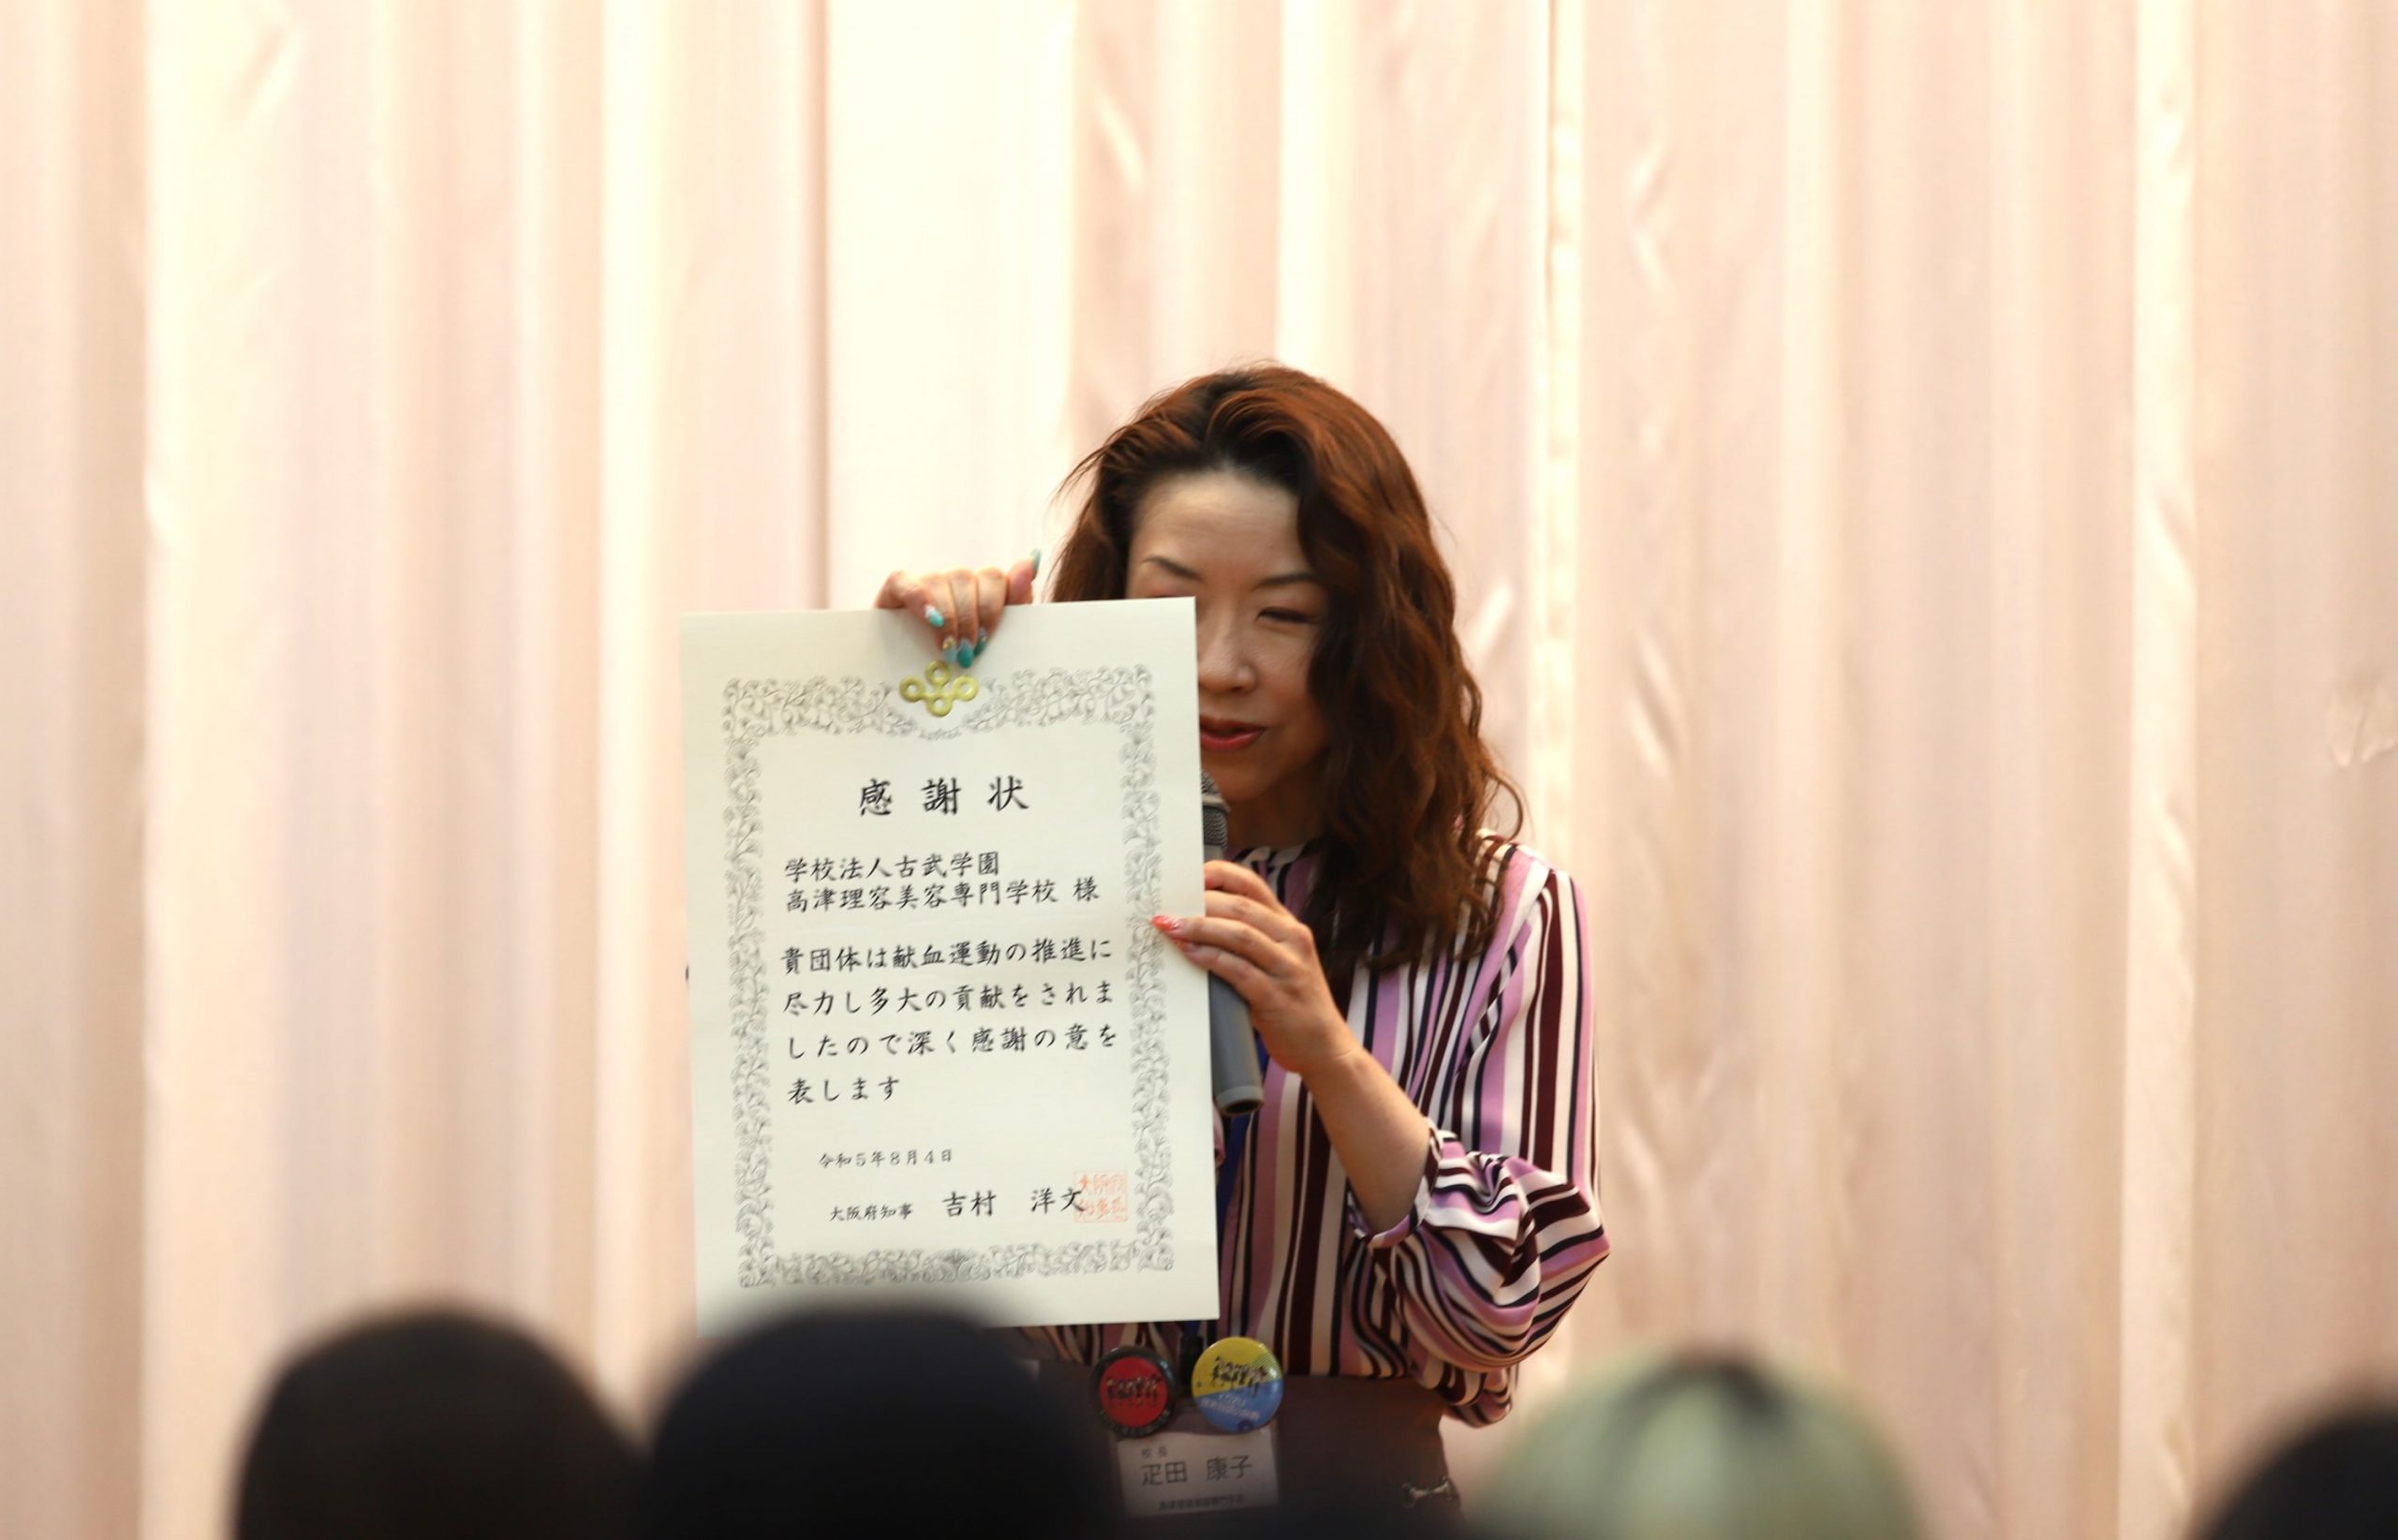 感謝状
学校法人古武学園
高津理容美容専門学校 様
貴団体は献血運動の推進に
尽力し多大の貢献をされま
したので深く感謝の意を
表します
令和5年8月4日
大阪府知事 吉村 洋文
校長
疋田 康子
高津理容美容専門学校